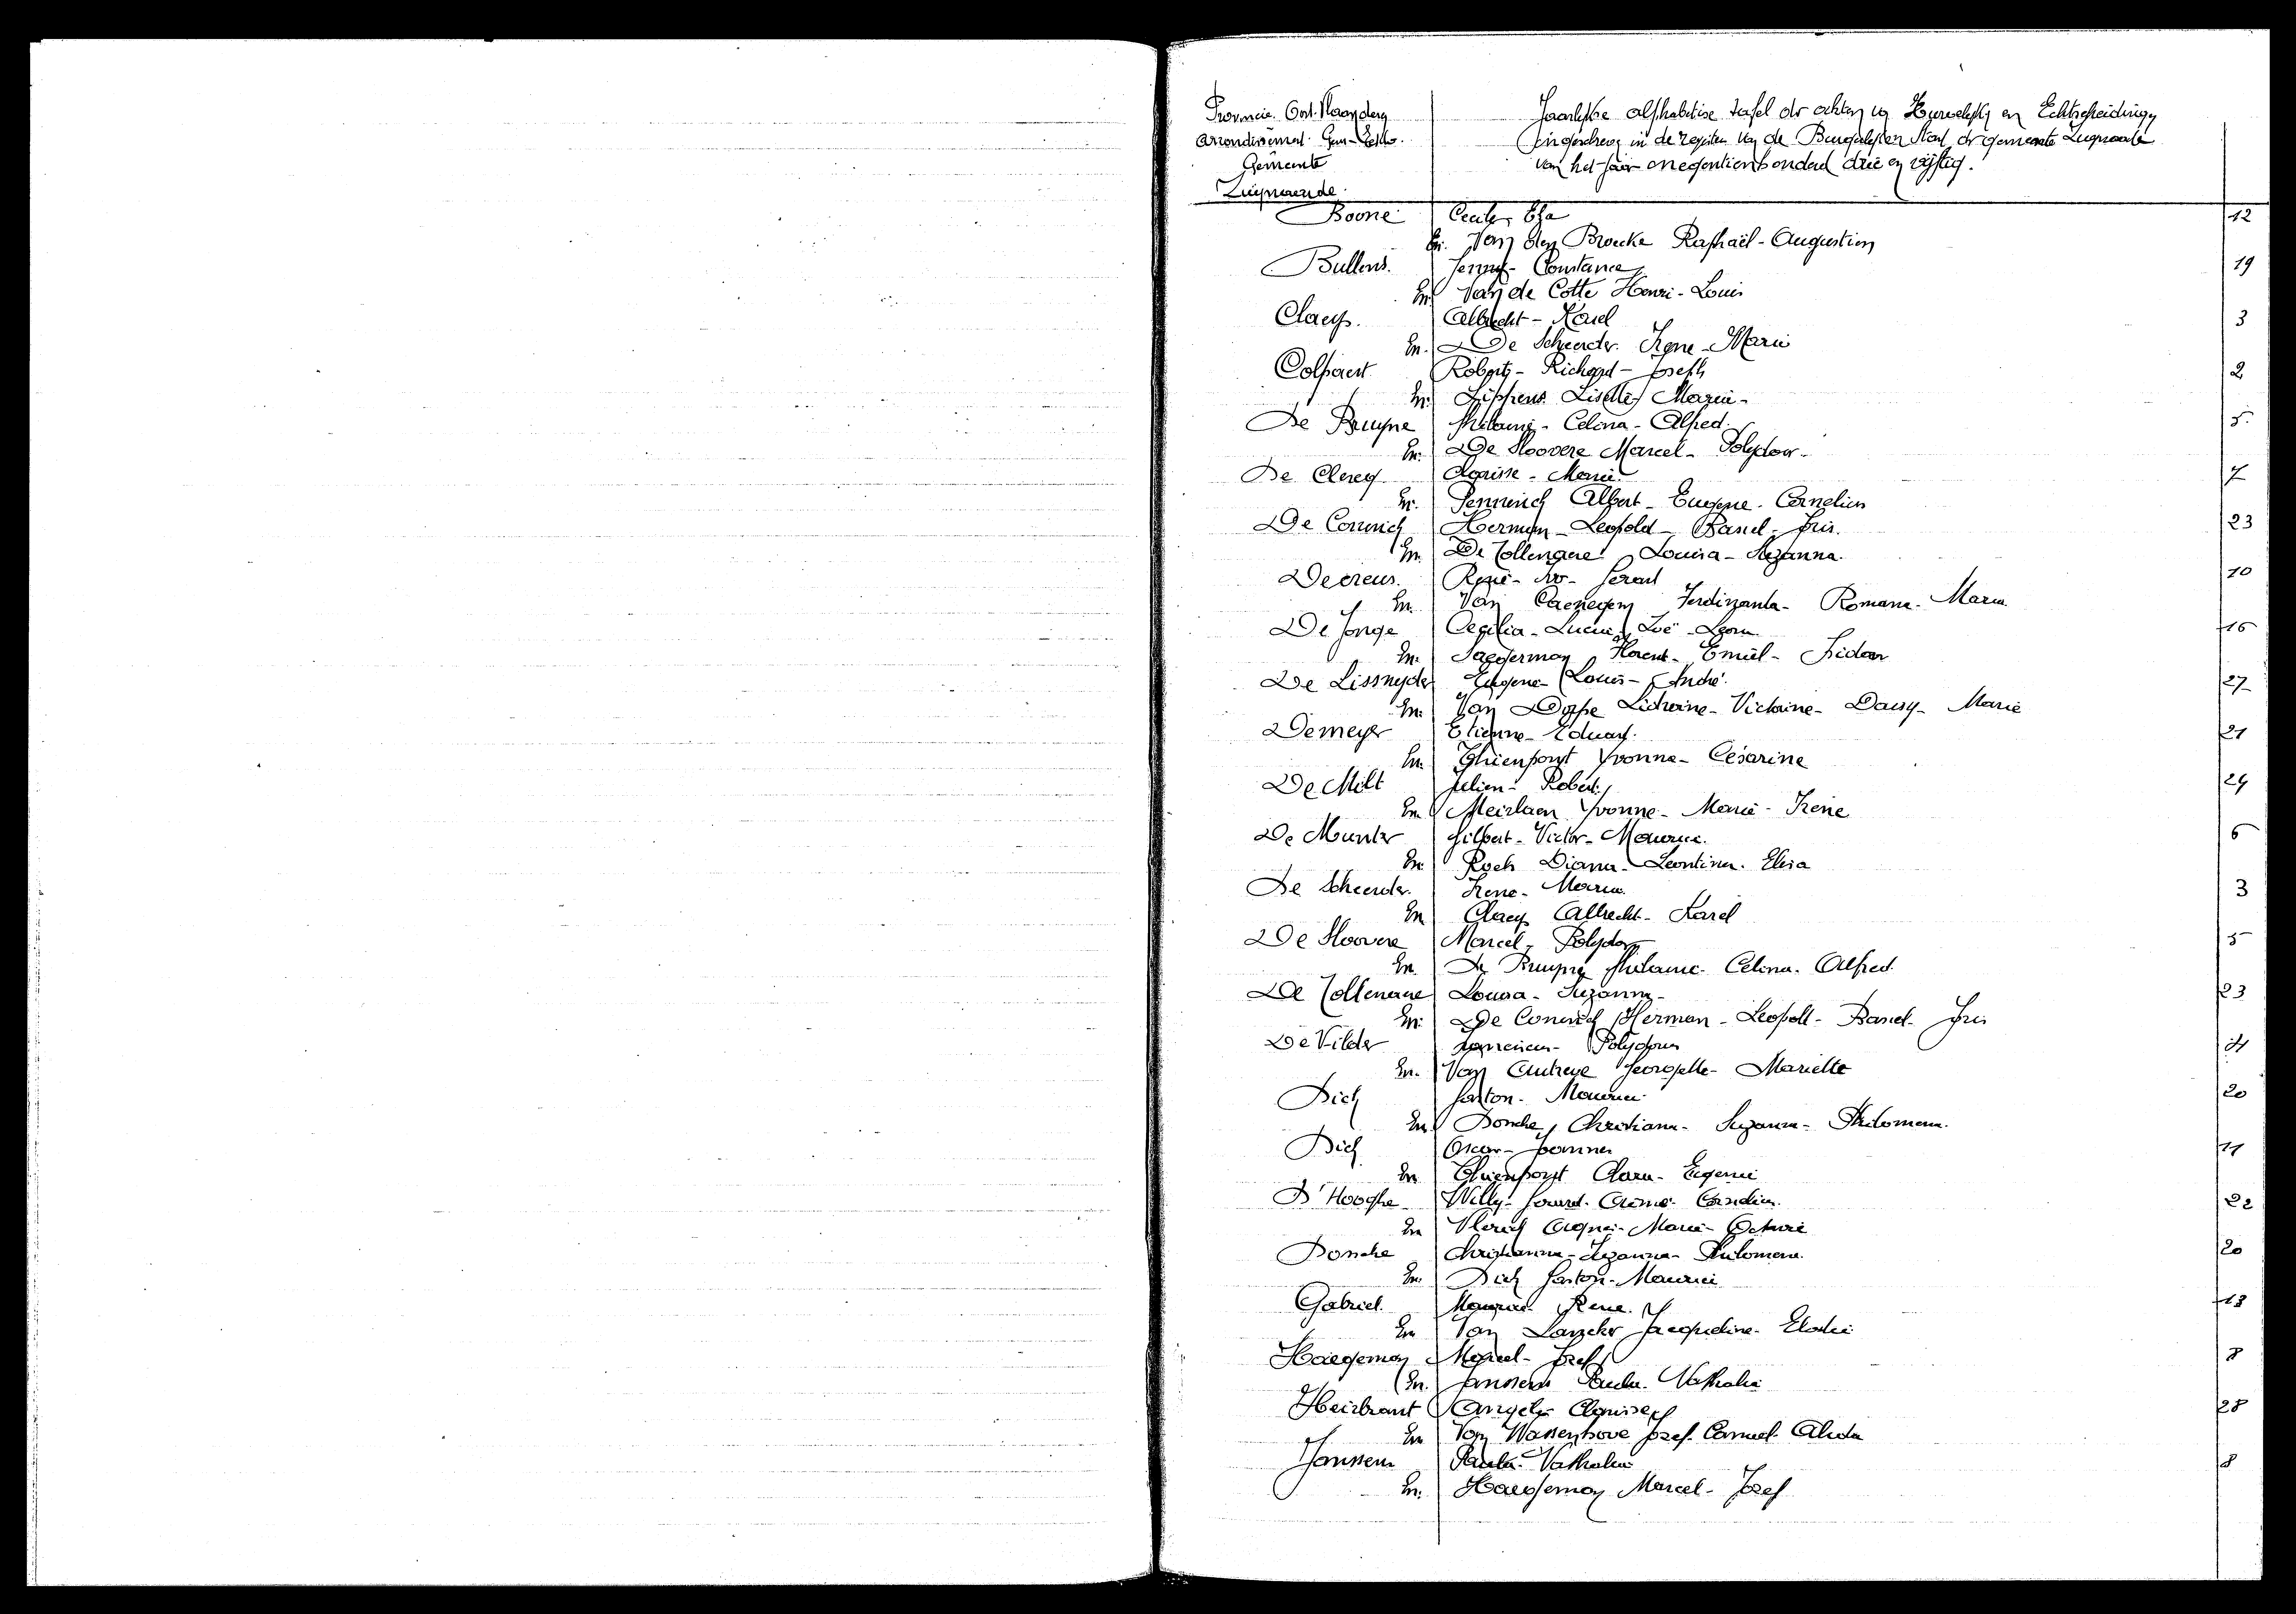 Provincie Oost Vlaanderen
Arrondissement Gent-Eekloo.
Gemeente
Zwijnaarde.
Jaarlijkse alphabetise tafel der akten van Huwelijken en Echtscheidingen
Ingeschreven in de registers van de Burgerlijken Stand der gemeente Zwijnaarde
van het jaar negentienhonderd drie en vijftig.
Boone Elza 12
En. Van den Broecke Raphaël-Augustin
Bullens. Jenny-Constance 19
En Van de Cotte Henri-Louis
Claeys. Albrecht-Karel 3
En. De Scheerder Irene-Marie
Colpaert Robert-Richard-Joseph 2
En Lippens Lisette Marie-
De Bruyne Celina-Alfred. 5
En. De Sloovere Marcel-Polydoor-
De Clercq Clarisse-Marie 7
En. Albert-Eugene-Cornelius
De Coninck Herman-Leopold-Basiel-Joris. 23
En De Tollenaere Louisa-Suzanna.
Decreus. René-Ivo-Gerard 10
En. Van Caeneghem Ferdinanda-Romana-Maria
De Jonge Cecilia-Lucie-Zoë-Leona 16
En. Saegerman Florent-Emiel-Isidoor
De Lissnyder Eugene-Louis-André. 27
En. Van Dorpe Victorine-Daisy-Marie
Demeyer Etienne-Eduard. 21
En. Ghienpont Yvonne-Césarine
De Milt Julien-Robert. 24
En Meirlaen Yvonne-Marie-Irene
De Munter Gilbert-Victor-Maurice. 6
En. Roels Diana-Leontina. Elisa
De Scheerder. Irene-Maria 3
En Claeys Albrecht-Karel
De Sloovere Marcel-Polydoor 5
En. De Bruyne Celina. Alfred.
De Tollenaere Louisa-Suzanna- 23
En. De Coninck Herman-Leopold-Basiel-Joris
De Vilder Polydoor
En. Van Autreve Georgette-Mariette
Dick Gaston-Maurice 20
En Donche Christiana-Suzanna-Philomena.
Dick Oscar- 11
En Ghienpont Clara-Eugenie
D'Hooghe Willy- 22
En Vlerick Agnes-Marie-Octavie
Donche Christianna-Suzanna-Philomena. 20
En. Dick Gaston-Maurice
Gabriel. Maurice Rene. 13
En Van Lancker Jacqueline-Elodie
Haegeman Marcel-Jozef 8
En. Janssens Paula. Nathalie
Heirbrant Angela Clarisse 28
En Van Wassenhove Jozef. Camiel. Alida
Janssens Paula-Nathalie 8
En. Haegeman Marcel-Jozef